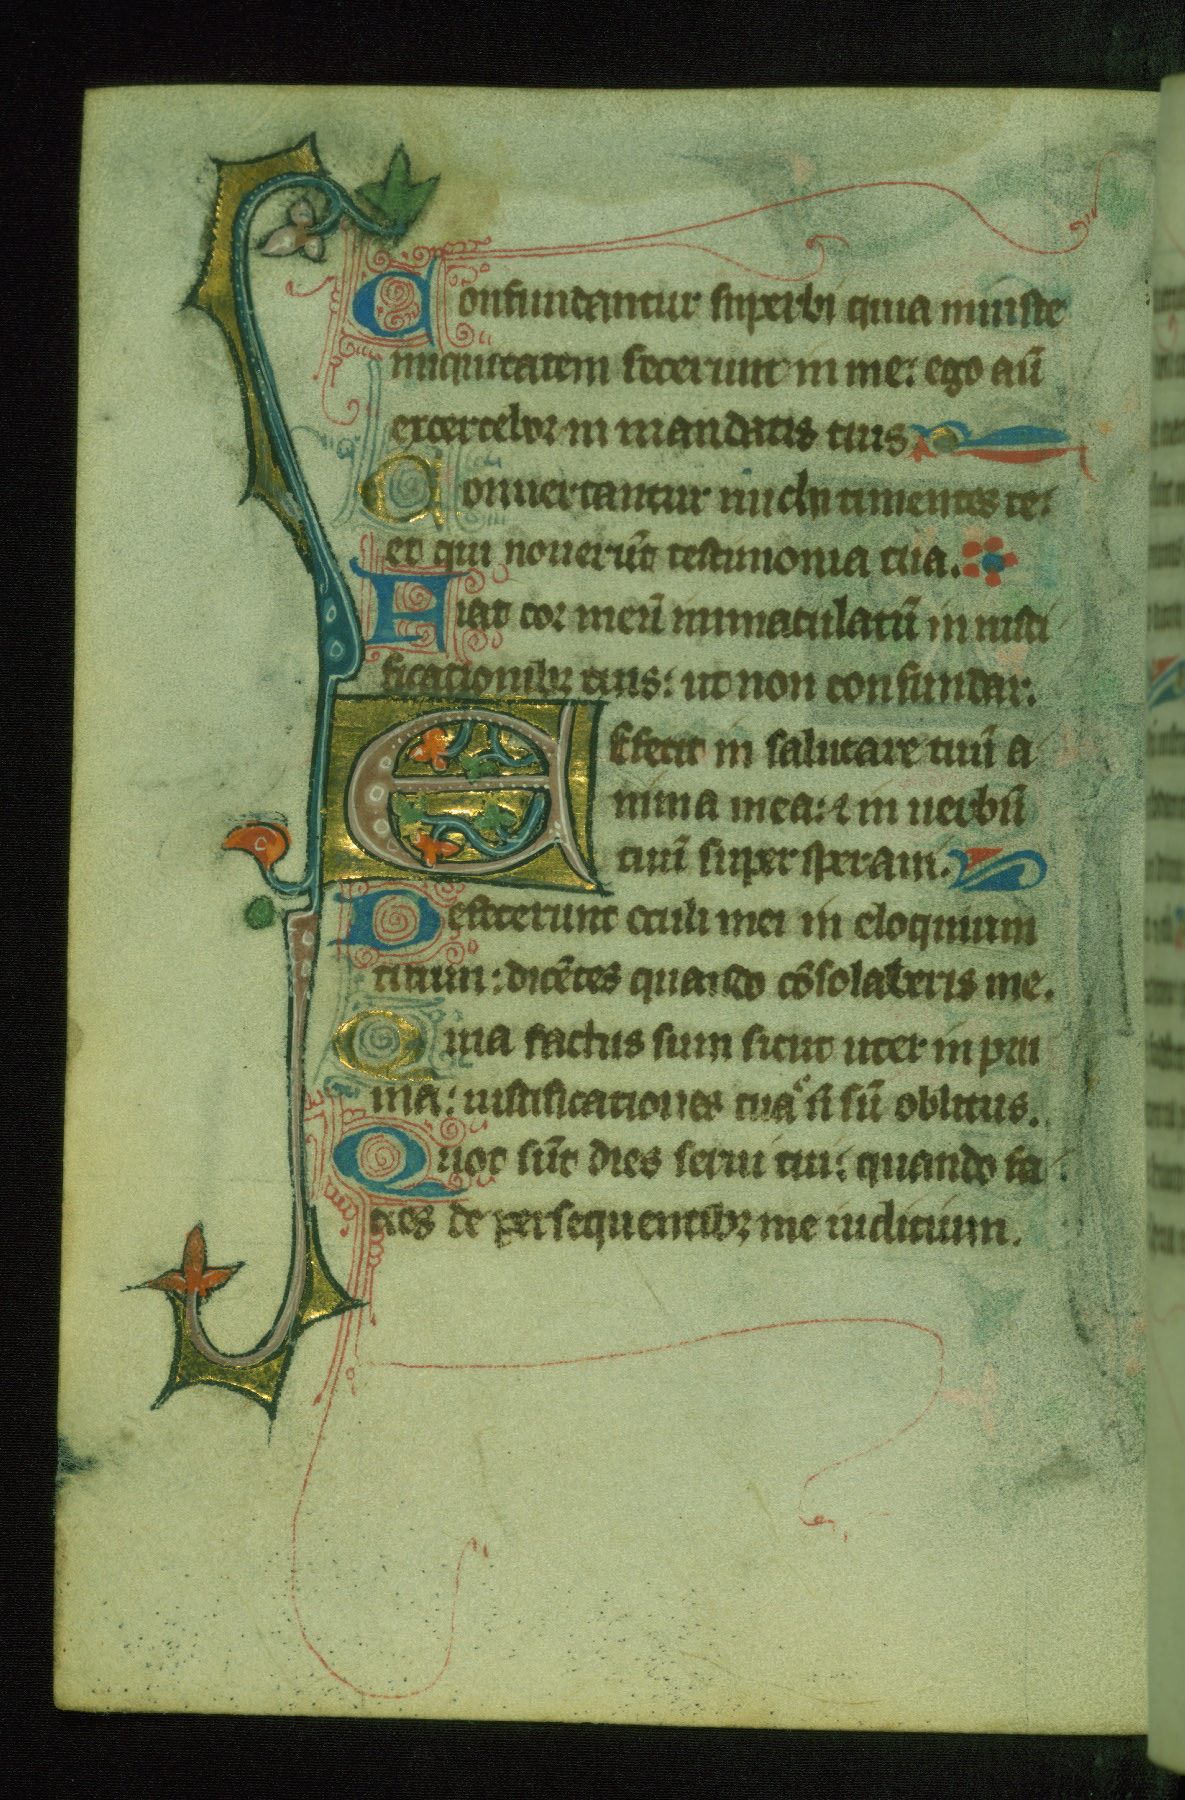 Confundantur superbi quia iniuste
iniquitatem fecerunt in me: ego aū
excercebor in mandatis tuis
Conuertantur michi timentes te:
et qui nouerūt testimonia tua.
Fiat cor meū immaculatū in iusti
ficationibꝫ tuis: ut non confundar.
Effecit in salutare tuū a
nima mea: ⁊ in uerbū
tuū super speraui.
Defecerunt oculi mei in eloquium
tuum: dicētes quando cōsolaberis me.
Quia factus sum sicut uter in prui
ma: iustificationes tuas n̄ sū oblitus.
Quot sūt dies serui tui: quando fa
cies de persequentibꝫ me iudicium.